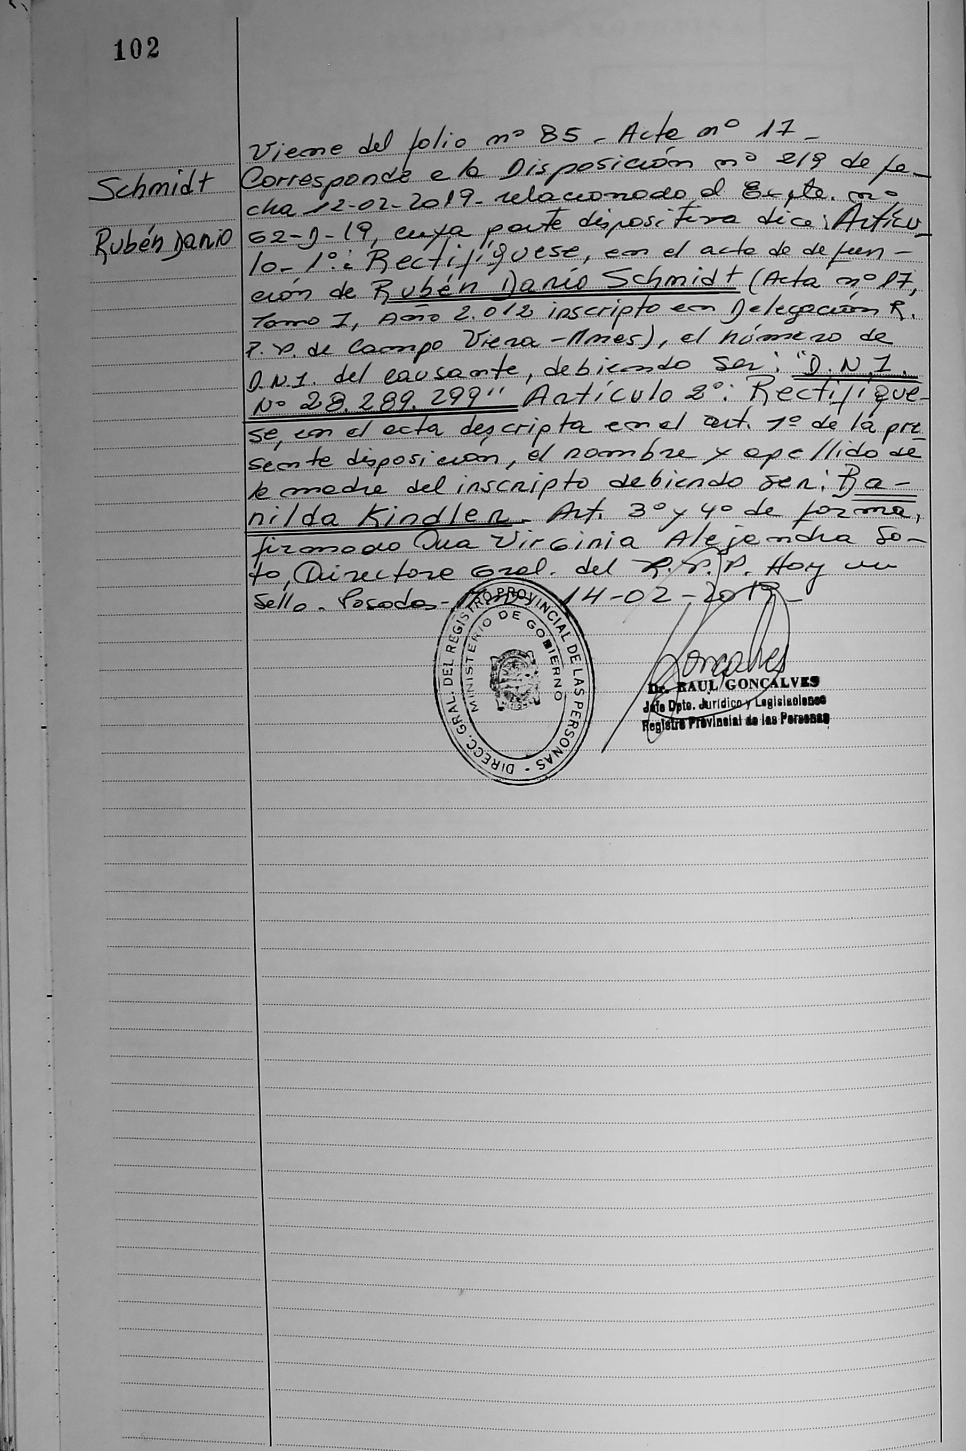 102
Schmidt
Rubén Dario
Viene del folio nº 85 - Acta nº 17 -
Corresponde a la Disposición nº 219 de fe-
cha 12-02-2019 - relacionado al Expte. nº
62-D-19, cuya parte dispositiva dice: Artícu-
lo - 1º: Rectifíquese, en el acta de defun-
ción de Rubén Darío Schmidt (Acta nº 17,
Tomo I, Año 2.012 inscripto en Delegación R.
P. P. de Campo Viera - Mnes), el número de
D.N.I. del causante, debiendo ser: "D.N.I.
Nº 28.289.299" Artículo 2º: Rectifíque-
se, en el acta descripta en el art. 1º de la pre-
sente disposición, el nombre y apellido de
la madre del inscripto debiendo ser: Ba-
nilda Kindler - Art. 3º y 4º de forma,
firmado Dra Virginia Alejandra So-
to, Directora Gral. del R.P.P. Hay un
sello - Posadas - 14-02-2019 -
DIRECC. GRAL. DEL REGISTRO PROVINCIAL DE LAS PERSONAS -
MINISTERIO DE GOBIERNO
Goncalves
Dr. RAUL GONCALVES
Jefe Dpto. Jurídico y Legislaciones
Registro Provincial de las Personas